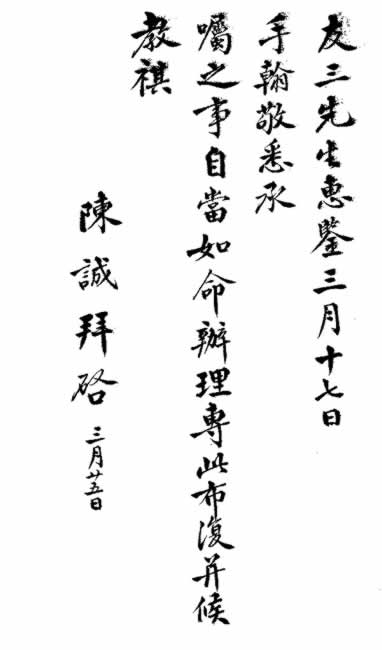 友三先生惠鑒三月十七日
手翰敬悉承
囑之事自當如命辦理專此布復并候
教祺
陳誠拜啓
三月廿五日